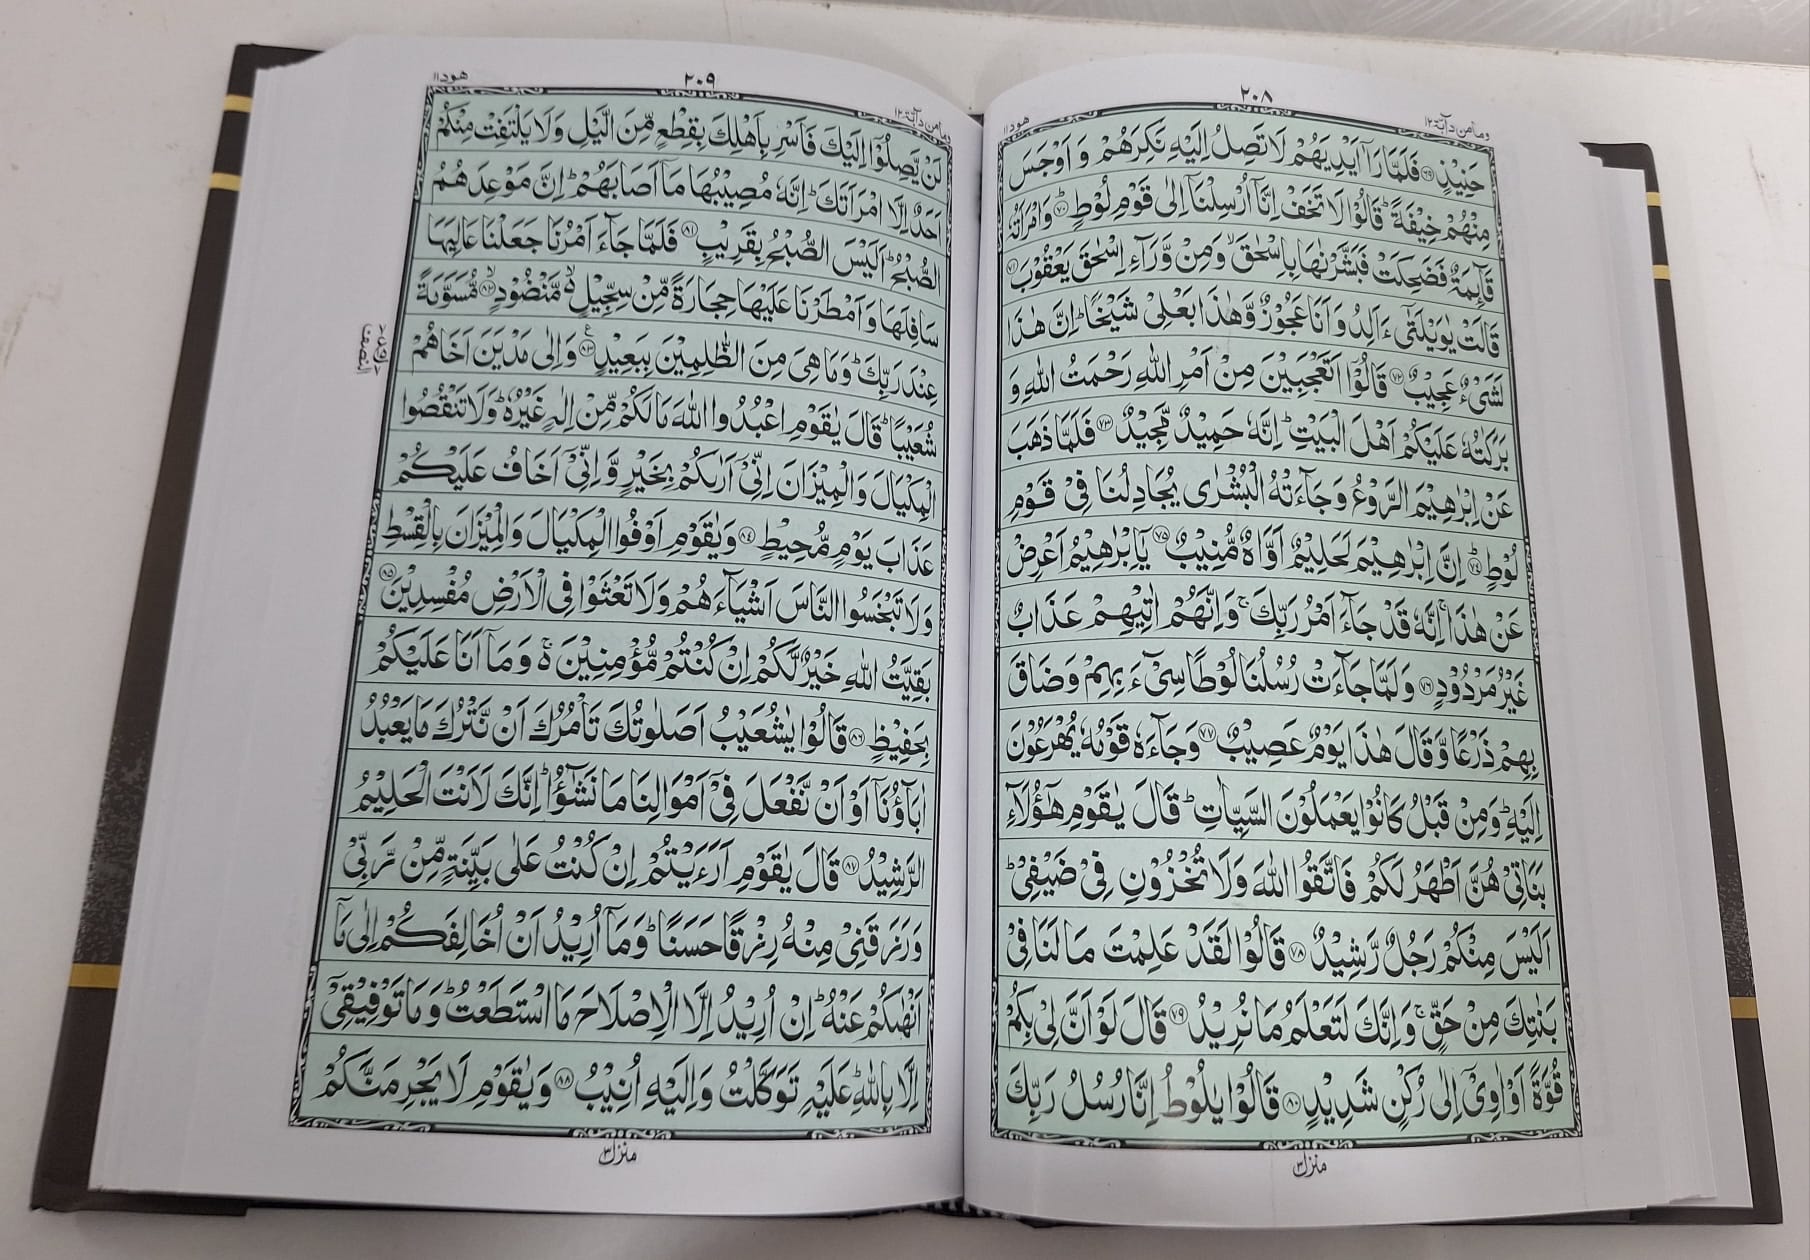 وما من دآبة ١٢
٢٠٨
هود ١١
حَنِيْذٍ ۝٦٩ فَلَمَّا رَاٰۤ اَيْدِيَهُمْ لَا تَصِلُ اِلَيْهِ نَكِرَهُمْ وَ اَوْجَسَ
مِنْهُمْ خِيْفَةًؕ قَالُوْا لَا تَخَفْ اِنَّاۤ اُرْسِلْنَاۤ اِلٰى قَوْمِ لُوْطٍؕ ۝٧٠ وَامْرَاَتُهٗ
قَآىِٕمَةٌ فَضَحِكَتْ فَبَشَّرْنٰهَا بِاِسْحٰقَۙ وَمِنْ وَّرَآءِ اِسْحٰقَ يَعْقُوْبَ ۝٧١
قَالَتْ يٰوَيْلَتٰۤى ءَاَلِدُ وَاَنَا عَجُوْزٌ وَّهٰذَا بَعْلِيْ شَيْخًاؕ اِنَّ هٰذَا
لَشَيْءٌ عَجِيْبٌ ۝٧٢ قَالُوْۤا اَتَعْجَبِيْنَ مِنْ اَمْرِ اللّٰهِ رَحْمَتُ اللّٰهِ وَ
بَرَكٰتُهٗ عَلَيْكُمْ اَهْلَ الْبَيْتِؕ اِنَّهٗ حَمِيْدٌ مَّجِيْدٌ ۝٧٣ فَلَمَّا ذَهَبَ
عَنْ اِبْرٰهِيْمَ الرَّوْعُ وَجَآءَتْهُ الْبُشْرٰى يُجَادِلُنَا فِيْ قَوْمِ
لُوْطٍؕ ۝٧٤ اِنَّ اِبْرٰهِيْمَ لَحَلِيْمٌ اَوَّاهٌ مُّنِيْبٌ ۝٧٥ يٰۤاِبْرٰهِيْمُ اَعْرِضْ
عَنْ هٰذَاۚ اِنَّهٗ قَدْ جَآءَ اَمْرُ رَبِّكَۚ وَاِنَّهُمْ اٰتِيْهِمْ عَذَابٌ
غَيْرُ مَرْدُوْدٍ ۝٧٦ وَلَمَّا جَآءَتْ رُسُلُنَا لُوْطًا سِيْٓءَ بِهِمْ وَضَاقَ
بِهِمْ ذَرْعًا وَّقَالَ هٰذَا يَوْمٌ عَصِيْبٌ ۝٧٧ وَجَآءَهٗ قَوْمُهٗ يُهْرَعُوْنَ
اِلَيْهِؕ وَمِنْ قَبْلُ كَانُوْا يَعْمَلُوْنَ السَّيِّاٰتِؕ قَالَ يٰقَوْمِ هٰۤؤُلَآءِ
بَنَاتِيْ هُنَّ اَطْهَرُ لَكُمْ فَاتَّقُوا اللّٰهَ وَلَا تُخْزُوْنِ فِيْ ضَيْفِيْؕ
اَلَيْسَ مِنْكُمْ رَجُلٌ رَّشِيْدٌ ۝٧٨ قَالُوْا لَقَدْ عَلِمْتَ مَا لَنَا فِيْ
بَنٰتِكَ مِنْ حَقٍّۚ وَاِنَّكَ لَتَعْلَمُ مَا نُرِيْدُ ۝٧٩ قَالَ لَوْ اَنَّ لِيْ بِكُمْ
قُوَّةً اَوْ اٰوِيْۤ اِلٰى رُكْنٍ شَدِيْدٍ ۝٨٠ قَالُوْا يٰلُوْطُ اِنَّا رُسُلُ رَبِّكَ
منزل ٣
وما من دآبة ١٢
٢٠٩
هود ١١
لَنْ يَّصِلُوْۤا اِلَيْكَ فَاَسْرِ بِاَهْلِكَ بِقِطْعٍ مِّنَ الَّيْلِ وَلَا يَلْتَفِتْ مِنْكُمْ
اَحَدٌ اِلَّا امْرَاَتَكَؕ اِنَّهٗ مُصِيْبُهَا مَاۤ اَصَابَهُمْؕ اِنَّ مَوْعِدَهُمُ
الصُّبْحُؕ اَلَيْسَ الصُّبْحُ بِقَرِيْبٍ ۝٨١ فَلَمَّا جَآءَ اَمْرُنَا جَعَلْنَا عَالِيَهَا
سَافِلَهَا وَاَمْطَرْنَا عَلَيْهَا حِجَارَةً مِّنْ سِجِّيْلٍ مَّنْضُوْدٍۙ ۝٨٢ مُّسَوَّمَةً
عِنْدَ رَبِّكَؕ وَمَا هِيَ مِنَ الظّٰلِمِيْنَ بِبَعِيْدٍ ۝٨٣ وَاِلٰى مَدْيَنَ اَخَاهُمْ
شُعَيْبًاؕ قَالَ يٰقَوْمِ اعْبُدُوا اللّٰهَ مَا لَكُمْ مِّنْ اِلٰهٍ غَيْرُهٗؕ وَلَا تَنْقُصُوا
الْمِكْيَالَ وَالْمِيْزَانَ اِنِّيْۤ اَرٰىكُمْ بِخَيْرٍ وَّاِنِّيْۤ اَخَافُ عَلَيْكُمْ
عَذَابَ يَوْمٍ مُّحِيْطٍ ۝٨٤ وَيٰقَوْمِ اَوْفُوا الْمِكْيَالَ وَالْمِيْزَانَ بِالْقِسْطِ
وَلَا تَبْخَسُوا النَّاسَ اَشْيَآءَهُمْ وَلَا تَعْثَوْا فِي الْاَرْضِ مُفْسِدِيْنَ ۝٨٥
بَقِيَّتُ اللّٰهِ خَيْرٌ لَّكُمْ اِنْ كُنْتُمْ مُّؤْمِنِيْنَ ۚ وَمَاۤ اَنَا عَلَيْكُمْ
بِحَفِيْظٍ ۝٨٦ قَالُوْا يٰشُعَيْبُ اَصَلٰوتُكَ تَاْمُرُكَ اَنْ نَّتْرُكَ مَا يَعْبُدُ
اٰبَآؤُنَاۤ اَوْ اَنْ نَّفْعَلَ فِيْۤ اَمْوَالِنَا مَا نَشٰٓؤُاؕ اِنَّكَ لَاَنْتَ الْحَلِيْمُ
الرَّشِيْدُ ۝٨٧ قَالَ يٰقَوْمِ اَرَءَيْتُمْ اِنْ كُنْتُ عَلٰى بَيِّنَةٍ مِّنْ رَّبِّيْ
وَرَزَقَنِيْ مِنْهُ رِزْقًا حَسَنًاؕ وَمَاۤ اُرِيْدُ اَنْ اُخَالِفَكُمْ اِلٰى مَاۤ
اَنْهٰىكُمْ عَنْهُؕ اِنْ اُرِيْدُ اِلَّا الْاِصْلَاحَ مَا اسْتَطَعْتُؕ وَمَا تَوْفِيْقِيْۤ
اِلَّا بِاللّٰهِؕ عَلَيْهِ تَوَكَّلْتُ وَاِلَيْهِ اُنِيْبُ ۝٨٨ وَيٰقَوْمِ لَا يَجْرِمَنَّكُمْ
منزل ٣